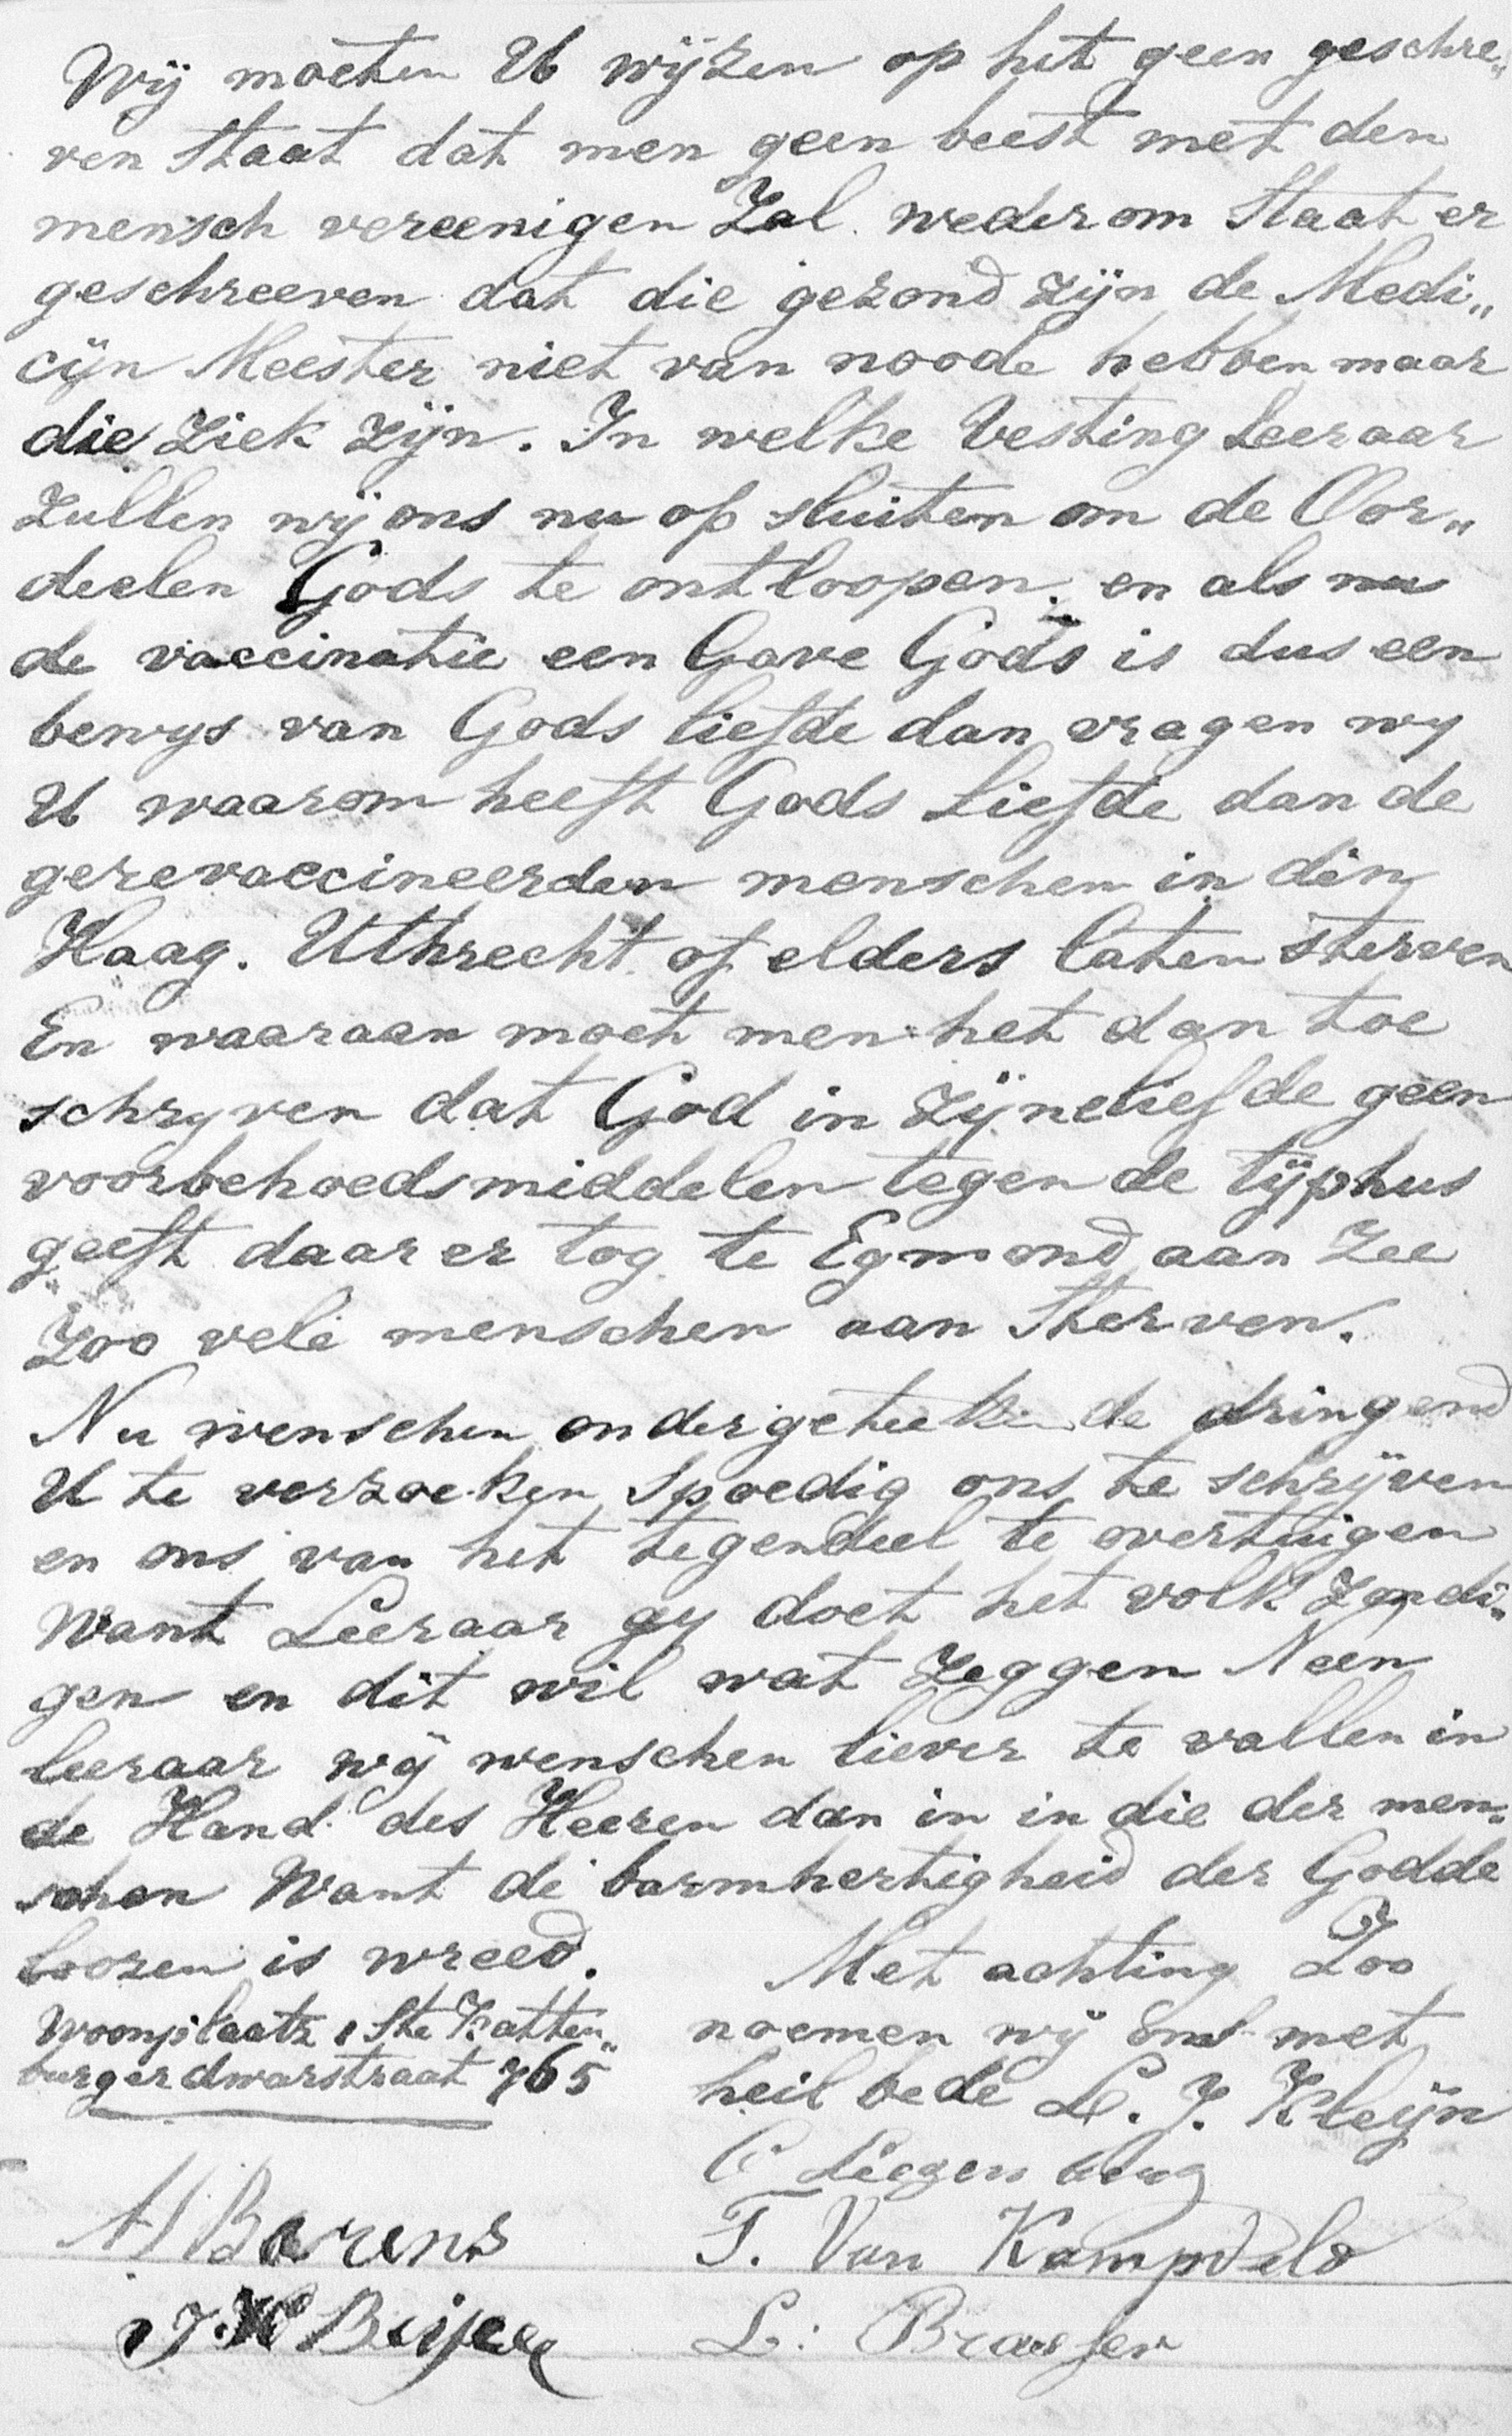 Wij moeten U wijzen op het geen geschre„
ven staat dat men geen beest met den
mensch vereenigen Zal. wederom staat er
geschreeven dat die gezond zijn de Medi„
cijn Meester niet van noode hebben maar
die ziek zijn. In welke Vesting Leeraar
Zullen wij ons nu op sluiten om de Oor„
deelen Gods te ontloopen. en als nu
de vaccinatie een Gave Gods is dus een
bewys van Gods liefde dan vragen wy
U waarom heeft Gods Liefde dan de
gerevaccineerden menschen in den
Haag. Uthrecht of elders laten sterven
En waaraan moet men het dan toe
schryven dat God in zijne liefde geen
voorbehoedsmiddelen tegen de tijphus
geeft daar er tog te Egmond aan Zee
Zoo vele menschen aan sterven.
Nu wenschen ondergeteekende dringend
U te verzoeken spoedig ons te schrijven
en ons van het tegendeel te overtuigen
Want Leeraar gy doet het volk zondi„
gen en dit wil wat zeggen Neen
leeraar wij wenschen liever te vallen in
de Hand des Heeren dan in in die der men„
schen Want de barmhertigheid der Godde
loozen is wreed.
Met achting Zoo
noemen wij ons met
heil bede L. J. Kleijn
Woonplaats 1ste Katten„
burgerdwarstraat 765
C
T. Van Kampveld
L: Braafer
Barens
J. H Beijer